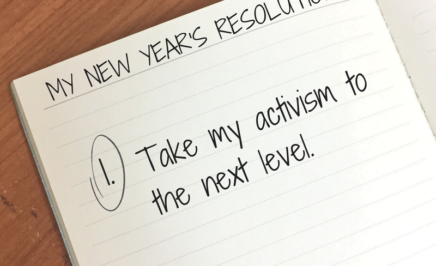 MY NEW YEAR'S
1. Take my activism to
the next level.